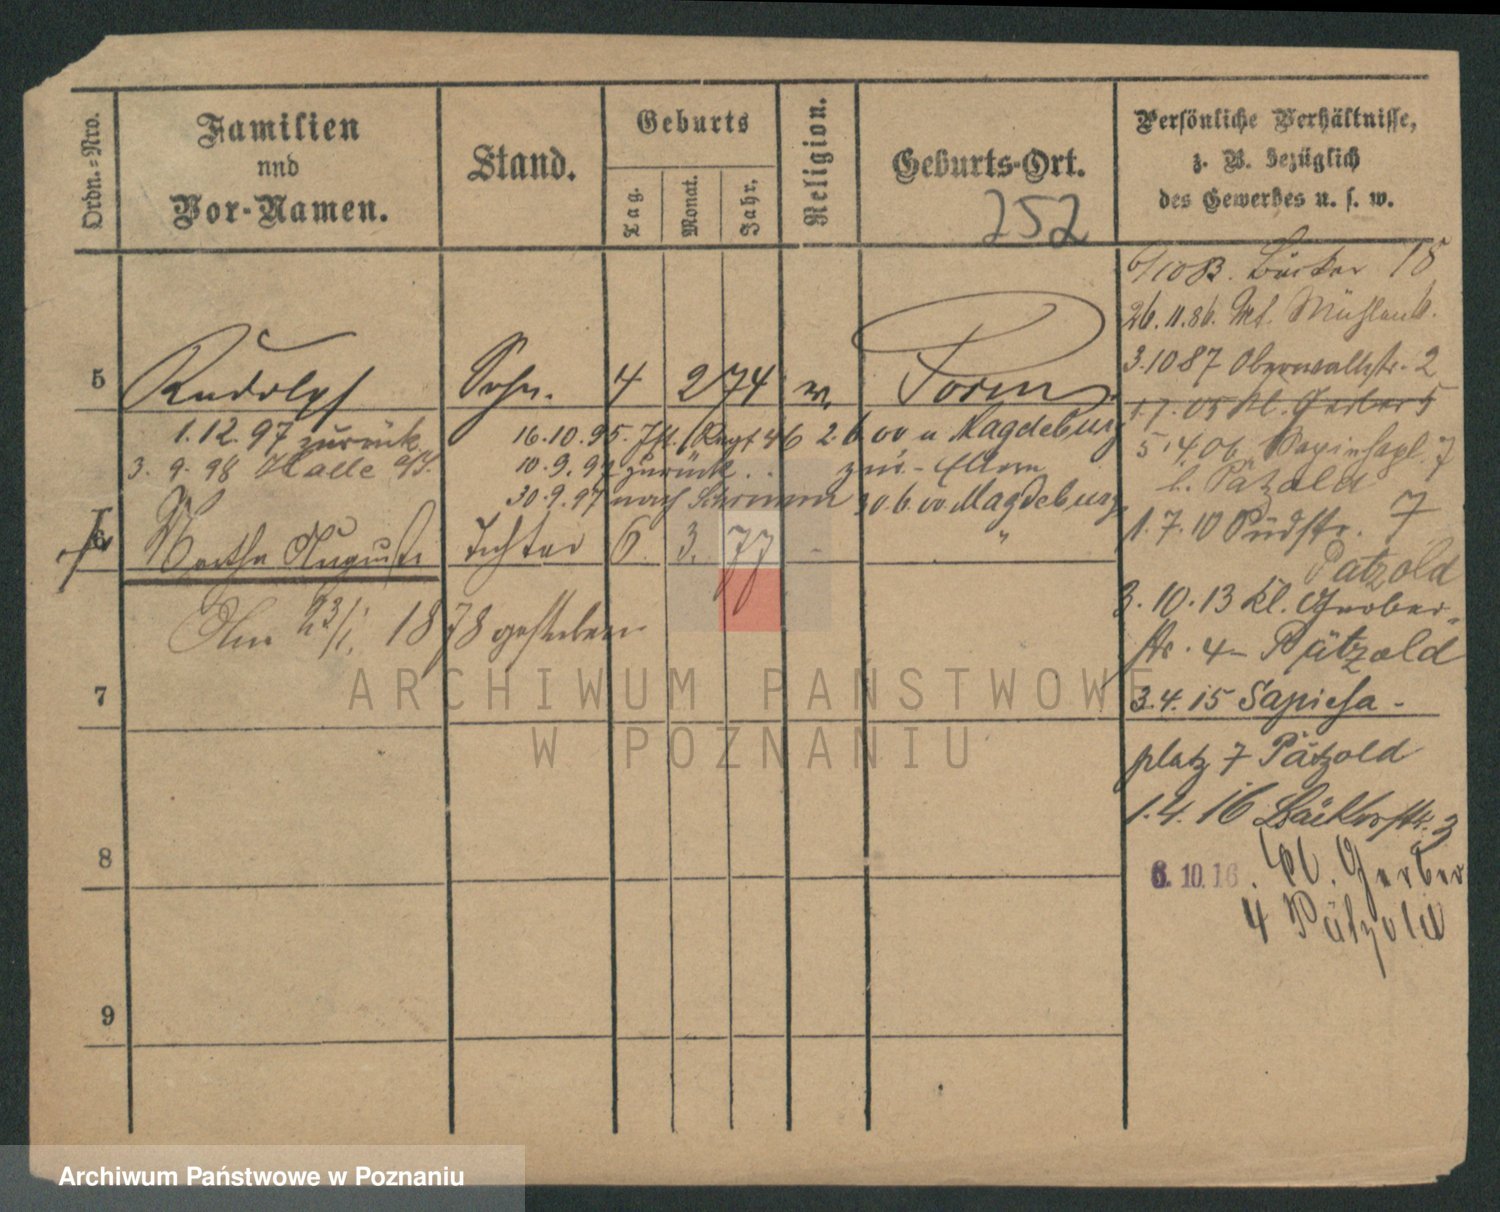 Ordn.=Nro.
Familien
und
Vor-Namen.
Stand.
Geburts
Tag.
Monat.
Jahr.
Religion.
Geburts-Ort.
252
Persönliche Verhältnisse,
z. B. bezüglich
des Gewerbes u. s. w.
6/10 83. Bäcker 18
26.11.86. Mühlen
3.10 87 Oberwallstr. 2
1.7.05 Kl. Gerber 5
5.4.06 7
b. Pätzold
1.7.10 Südstr. 7
Pätzold
3.10.13 Kl. Gerber-
str. 4 - Pätzold
3.4.15 Sapieha-
platz 7 Pätzold
1.4.16 Bäckerstr. 3
6.10.16. Kl. Gerber
4 Pätzold
5 Rudolph Sohn. 4 2 74 Posen
1.12.97 zurück 16.10.95. Regt 46 2.6.00 n Magdeburg
3.9.98 Halle a/S. zurück zur. Eltern
30.9.97 nach 30.6.00 Magdeburg
6 Martha Auguste Tochter 6. 3. 77 "
Am 23/1. 1878 gestorben
7
8
9
ARCHIWUM PAŃSTWOWE
W POZNANIU
Archiwum Państwowe w Poznaniu